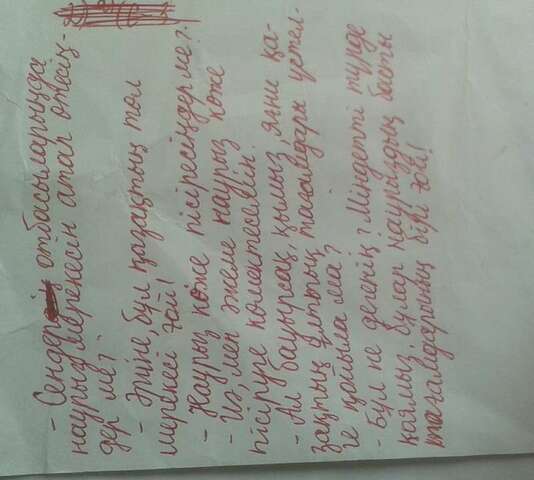 - Сендер отбасыларыңда
наурыз мерекесін атап өтесің-
дер ме?
- Әрине бұл қазақтың төл
мерекесі ғой!
- Наурыз көже пісіресіңдер ме?
- Иә, мен әжеме наурыз көже
пісіруге көмектесемін.
- Ал бауырсақ, қымыз, яғни қа-
зақтың ұлттық тағамдары үстел-
ге қойыла ма?
- Бұл не дегенің? Міндетті түрде
қоямыз, бұлар наурыздың басты
тағамдарының бірі ғой!